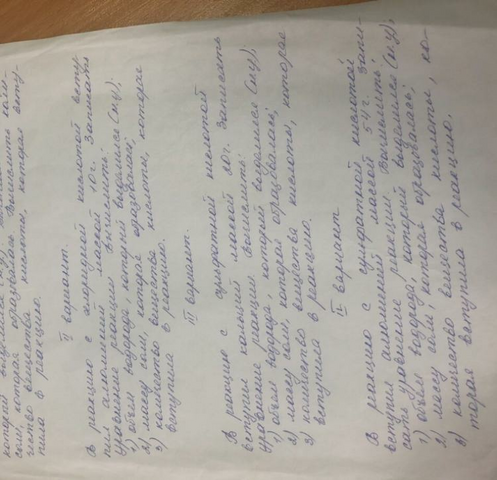 который выделился
соли, которая образовалась. Вычислить коли-
чество вещества кислоты, которая всту-
пила в реакцию.
II вариант.
В реакцию с хлоридной кислотой всту-
пил алюминий массой 10 г. Записать
уравнение реакции. Вычислить:
1) объём водорода, который выделился (н.у);
2) массу соли, которая образовалась;
3) количество вещества кислоты, которое
вступила в реакцию.
III вариант.
В реакцию с сульфатной кислотой
вступил кальций массой 80 г. Записать
уравнение реакции. Вычислить:
1) объём водорода, который выделился (н.у);
2) массу соли, которая образовалась;
3) количество вещества кислоты, которая
вступила в реакцию.
IV вариант.
В реакцию с сульфатной кислотой
вступил алюминий массой 54 г. Запи-
сать уравнение реакции. Вычислить:
1) объём водорода, который выделился (н.у);
2) массу соли, которая образовалась;
3) количество вещества кислоты, ко-
торая вступила в реакцию.